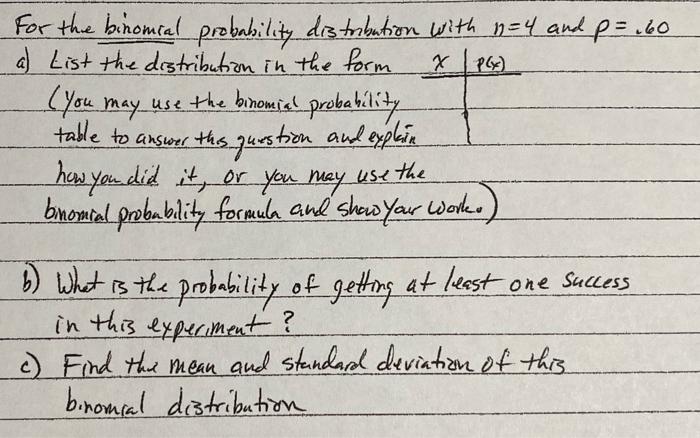 For the binomial probability distribution with n=4 and p=.60
a) List the distribution in the form x | p(x)
(You may use the binomial probability
table to answer this question and explain
how you did it, or you may use the
binomial probability formula and show your work.)
b) What is the probability of getting at least one success
in this experiment?
c) Find the mean and standard deviation of this
binomial distribution